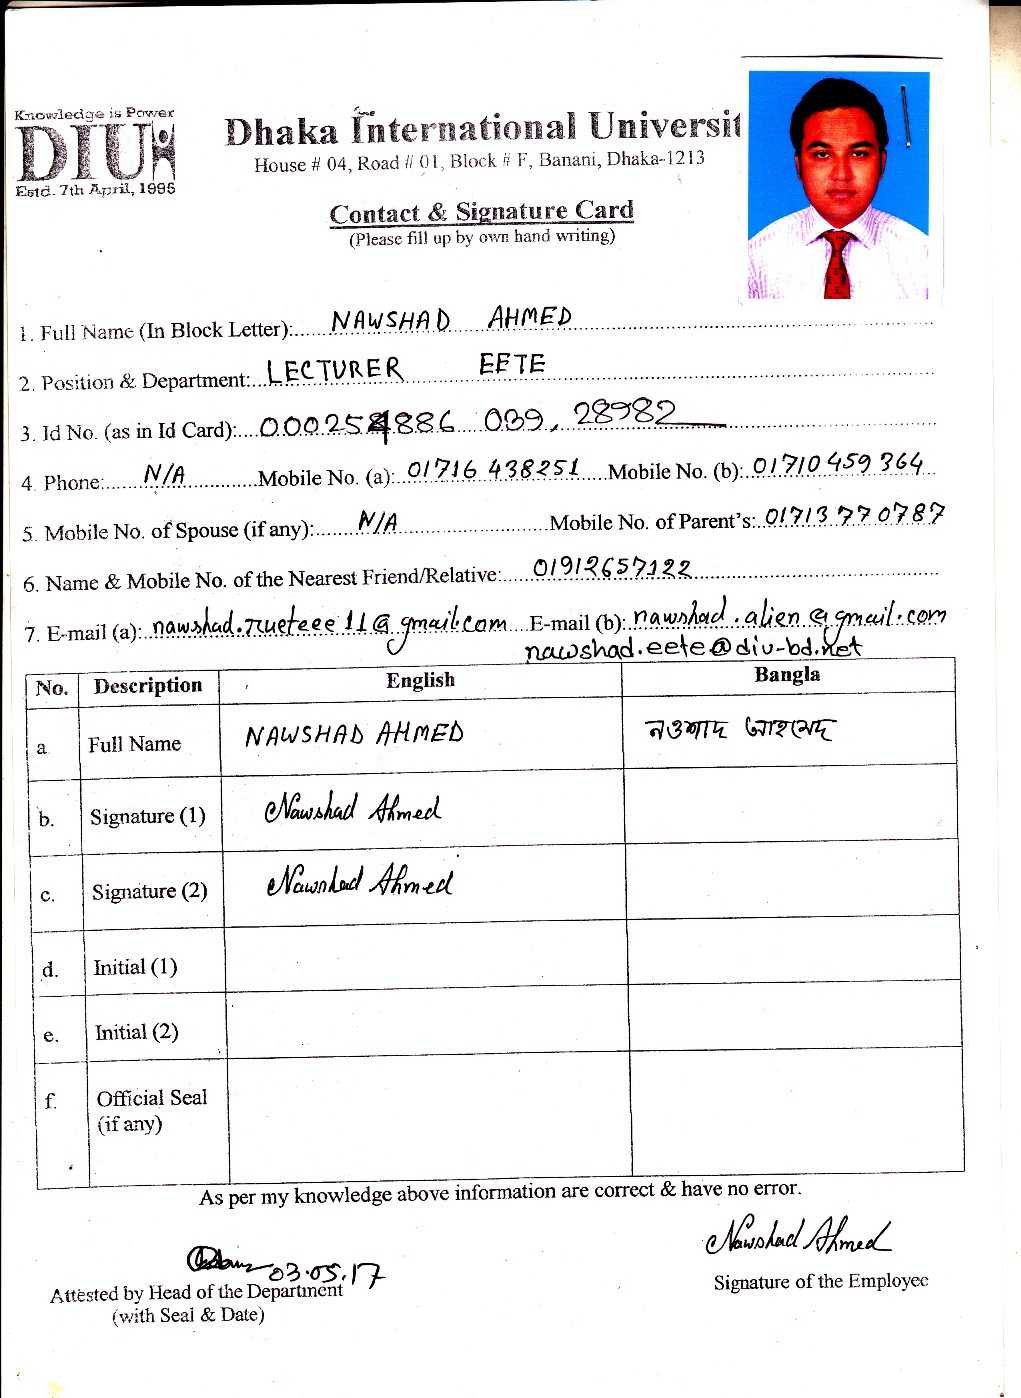 Knowledge is Power
DIU
Estd. 7th April, 1995
Dhaka International Universit
House # 04, Road # 01, Block # F, Banani, Dhaka-1213
Contact & Signature Card
(Please fill up by own hand writing)
1. Full Name (In Block Letter): NAWSHAD AHMED
2. Position & Department: LECTURER EETE
3. Id No. (as in Id Card): 000254886 039, 28982
4. Phone: N/A Mobile No. (a): 01716 438251 Mobile No. (b): 01710 459 364
5. Mobile No. of Spouse (if any): N/A Mobile No. of Parent's: 01713 770787
6. Name & Mobile No. of the Nearest Friend/Relative: 01912657122
7. E-mail (a): nawshad.rueteee11@gmail.com E-mail (b): nawshad.alien@gmail.com
nawshad.eete@diu-bd.net
No. Description English Bangla
a Full Name NAWSHAD AHMED নওশাদ আহমেদ
b. Signature (1) Nawshad Ahmed
c. Signature (2) Nawshad Ahmed
d. Initial (1)
e. Initial (2)
f. Official Seal
(if any)
As per my knowledge above information are correct & have no error.
Nawshad Ahmed
03.05.17
Attested by Head of the Department
(with Seal & Date)
Signature of the Employee